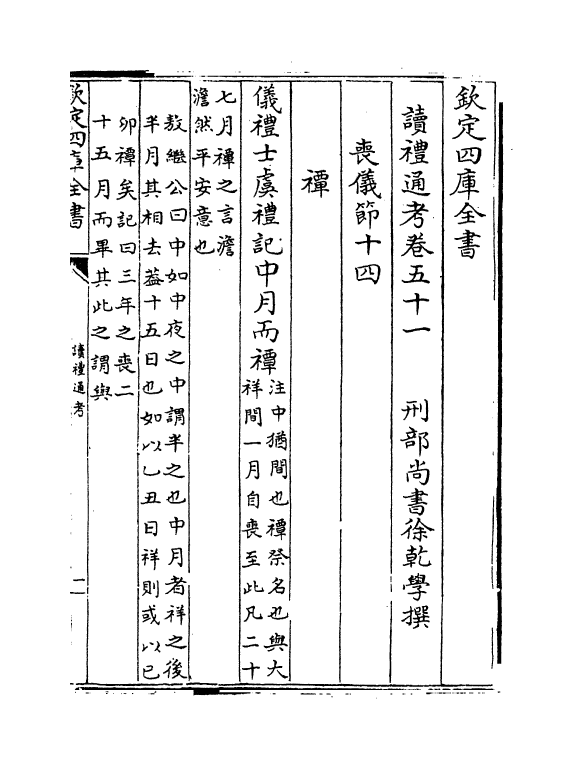 欽定四庫全書
讀禮通考卷五十一　刑部尚書徐乾學撰
喪儀節十四
禫
儀禮士虞禮記中月而禫
注中猶間也禫祭名也與大
祥間一月自喪至此凡二十
七月禫之言澹
澹然平安意也
敖繼公曰中如中夜之中謂半之也中月者祥之後
半月其相去葢十五日也如以乙丑日祥則或以已
卯禫矣記曰三年之喪二
十五月而畢其此之謂與
欽定四庫全書
讀禮通考
二